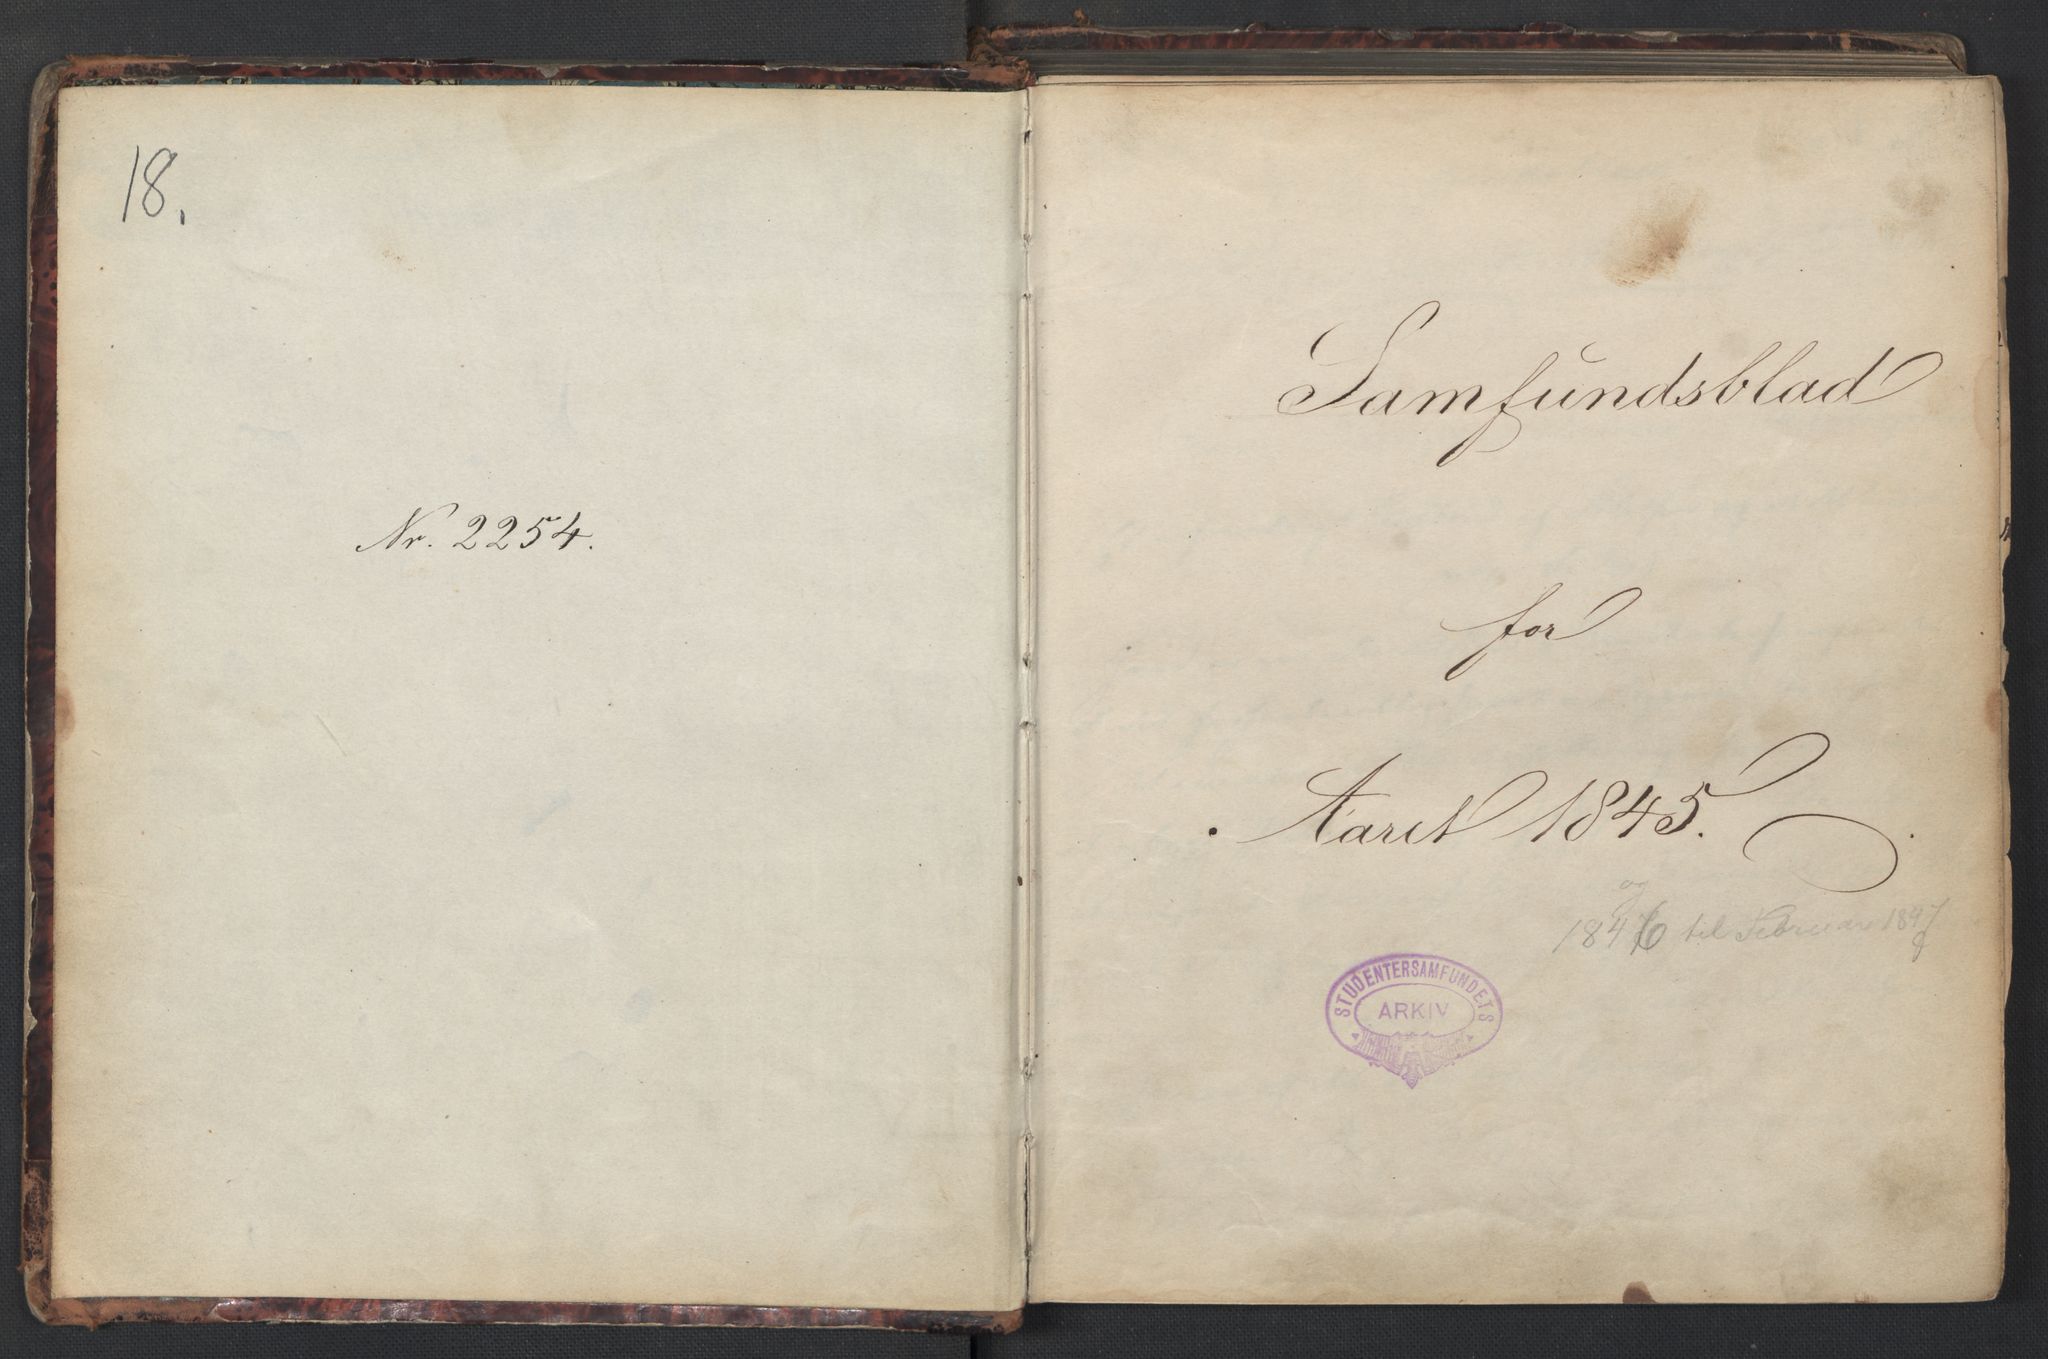 18.
Nr. 2254.
Samfundsblad
for
Aaret 1845.
og
1846 til Februar 1847
STUDENTERSAMFUNDETS
ARKIV